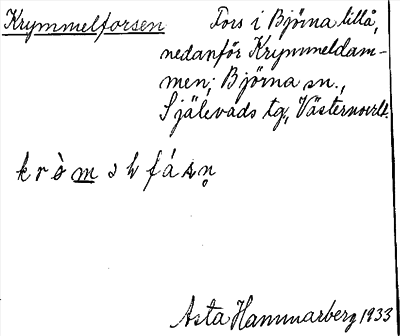 Krymmelforsen Fors i Björna lillå,
nedanför Krymmeldam-
men; Björna sn.,
Själevads tg, Västernorrl.
krò̀m ǝlfásṇ
Asta Hammarberg 1933